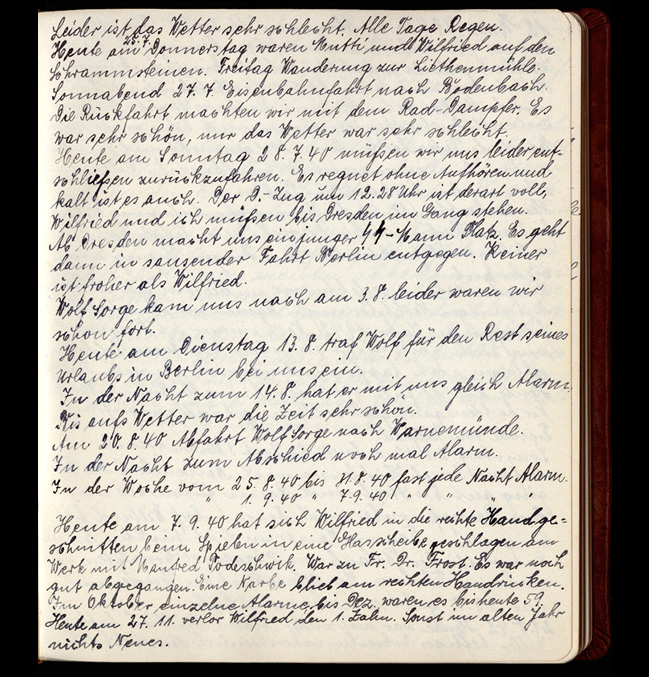 Leider ist das Wetter sehr schlecht. Alle Tage Regen.
25.7.
Heute am Donnerstag waren Mutti und Wilfried auf den
Schrammsteinen. Freitag Wanderung zur Liethenmühle.
Sonnabend 27.7. Eisenbahnfahrt nach Bodenbach.
Die Rückfahrt machten wir mit dem Rad-Dampfer. Es
war sehr schön, nur das Wetter war sehr schlecht.
Heute am Sonntag 28.7.40 müßen wir uns leider ent-
schließen zurückzufahren. Es regnet ohne Aufhören und
kalt ist es auch. Der D.-Zug um 12.28 Uhr ist derart voll,
Wilfried und ich müßen bis Dresden im Gang stehen.
Ab Dresden macht uns ein junger ϟϟ-Mann Platz. Es geht
dann in sausender Fahrt Berlin entgegen. Keiner
ist froher als Wilfried.
Wolf Sorge kam uns nach am 3.8. leider waren wir
schon fort.
Heute am Dienstag 13.8. traf Wolf für den Rest seines
Urlaubs in Berlin bei uns ein.
In der Nacht zum 14.8. hat er mit uns gleich Alarm.
Bis aufs Wetter war die Zeit sehr schön.
Am 20.8.40 Abfahrt Wolf Sorge nach Warnemünde.
In der Nacht zum Abschied noch mal Alarm.
In der Woche vom 25.8.40 bis 31.8.40 fast jede Nacht Alarm.
" 1.9.40 " 7.9.40 " " "
Heute am 7.9.40 hat sich Wilfried in die rechte Hand ge-
schnitten beim Spielen in eine Glasscheibe geschlagen am
Werk mit Manfred. War zu Fr. Dr. Frost. Es war noch
gut abgegangen. Eine Narbe blieb am rechten Handrücken.
Im Oktober einzelne Alarme, bis Dez. waren es bis heute 59.
Heute am 27.11. verlor Wilfried den 1. Zahn. Sonst im alten Jahr
nichts Neues.